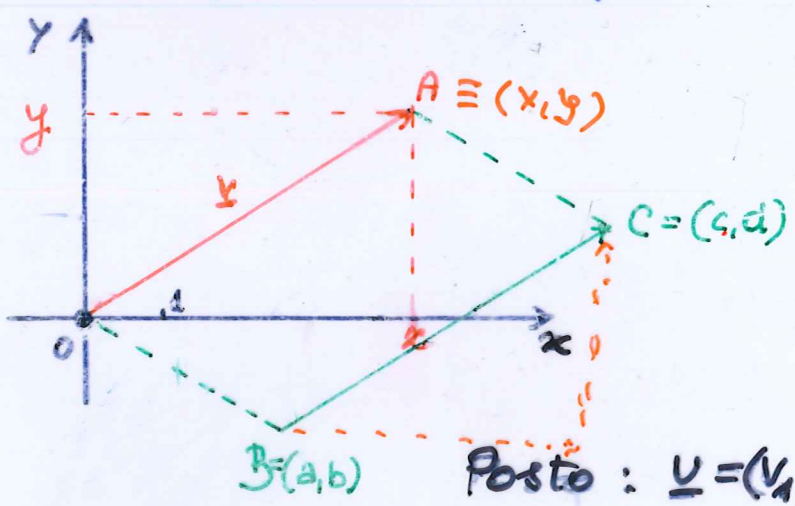 Y
A ≡ (x,y)
y
v
C = (c,d)
1
0
x
x
B=(a,b)
Posto : v = (v₁